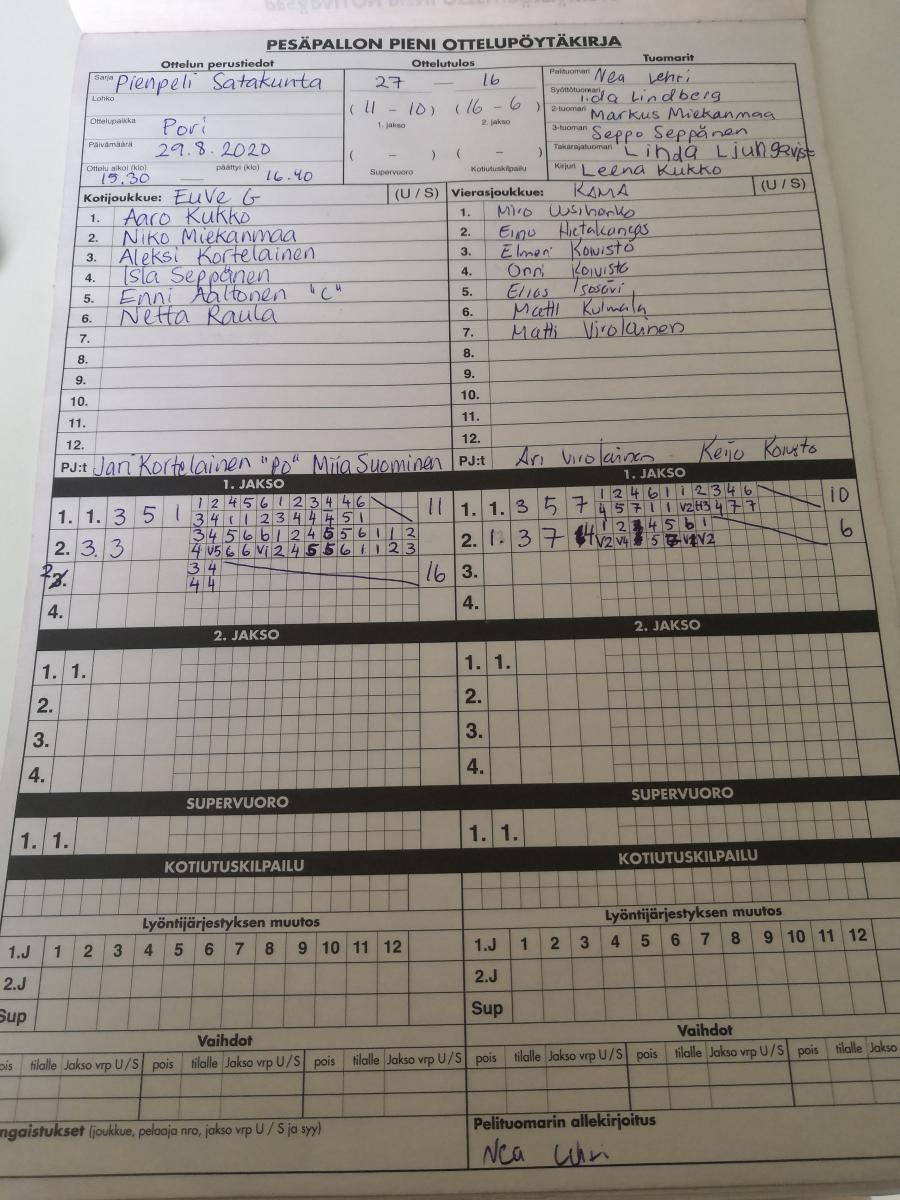 PESÄPALLON PIENI OTTELUPÖYTÄKIRJA
Ottelun perustiedot
Sarja Pienpeli Satakunta
Lohko
Ottelupaikka Pori
Päivämäärä 29.8.2020
Ottelu alkoi (klo) päättyi (klo)
15.30 — 16.40
Ottelutulos
27 — 16
(11 - 10) (16 - 6)
1. jakso 2. jakso
( - ) ( - )
Supervuoro Kotiutuskilpailu
Tuomarit
Pelituomari Nea Lehri
Syöttötuomari Iida Lindberg
2-tuomari Markus Miekanmaa
3-tuomari Seppo Seppänen
Takarajatuomari Linda Ljungqvist
Kirjuri Leena Kukko
Kotijoukkue: EuVe G (U / S)
1. Aaro Kukko
2. Niko Miekanmaa
3. Aleksi Kortelainen
4. Isla Seppänen
5. Enni Aaltonen "C"
6. Netta Raula
7.
8.
9.
10.
11.
12.
PJ:t Jari Kortelainen "PO" Miia Suominen
Vierasjoukkue: KAMA (U / S)
1. Miro
2. Eino Hietakangas
3. Elmeri Koivisto
4. Onni Koivisto
5. Elias
6. Matti Kulmala
7. Matti Virolainen
8.
9.
10.
11.
12.
PJ:t Ari Virolainen Keijo Koivisto
1. JAKSO
1. 1. 3 5 1 1 2 4 5 6 1 2 3 4 4 6 11
3 4 1 1 2 3 4 4 4 5 1
2. 3. 3 3 4 5 6 6 1 2 4 5 5 6 1 1 2
4 V5 6 6 V1 2 4 5 5 6 1 1 2 3
2. 3 4 16
4 4
4.
1. JAKSO
1. 1. 3 5 7 1 2 4 6 1 1 2 3 4 6 10
4 5 7 1 1 V2 H3 4 7 7
2. 1. 3 7 4 1 2 4 5 6 1 6
V2 V4 5 V1 V2
3.
4.
2. JAKSO
1. 1.
2.
3.
4.
2. JAKSO
1. 1.
2.
3.
4.
SUPERVUORO
1. 1.
SUPERVUORO
1. 1.
KOTIUTUSKILPAILU
KOTIUTUSKILPAILU
Lyöntijärjestyksen muutos
1.J 1 2 3 4 5 6 7 8 9 10 11 12
2.J
Sup
Lyöntijärjestyksen muutos
1.J 1 2 3 4 5 6 7 8 9 10 11 12
2.J
Sup
Vaihdot
ois tilalle Jakso vrp U / S pois tilalle Jakso vrp U / S pois tilalle Jakso vrp U / S
Vaihdot
pois tilalle Jakso vrp U / S pois tilalle Jakso vrp U / S pois tilalle Jakso
ngaistukset (joukkue, pelaaja nro, jakso vrp U / S ja syy)
Pelituomarin allekirjoitus
Nea Lehri